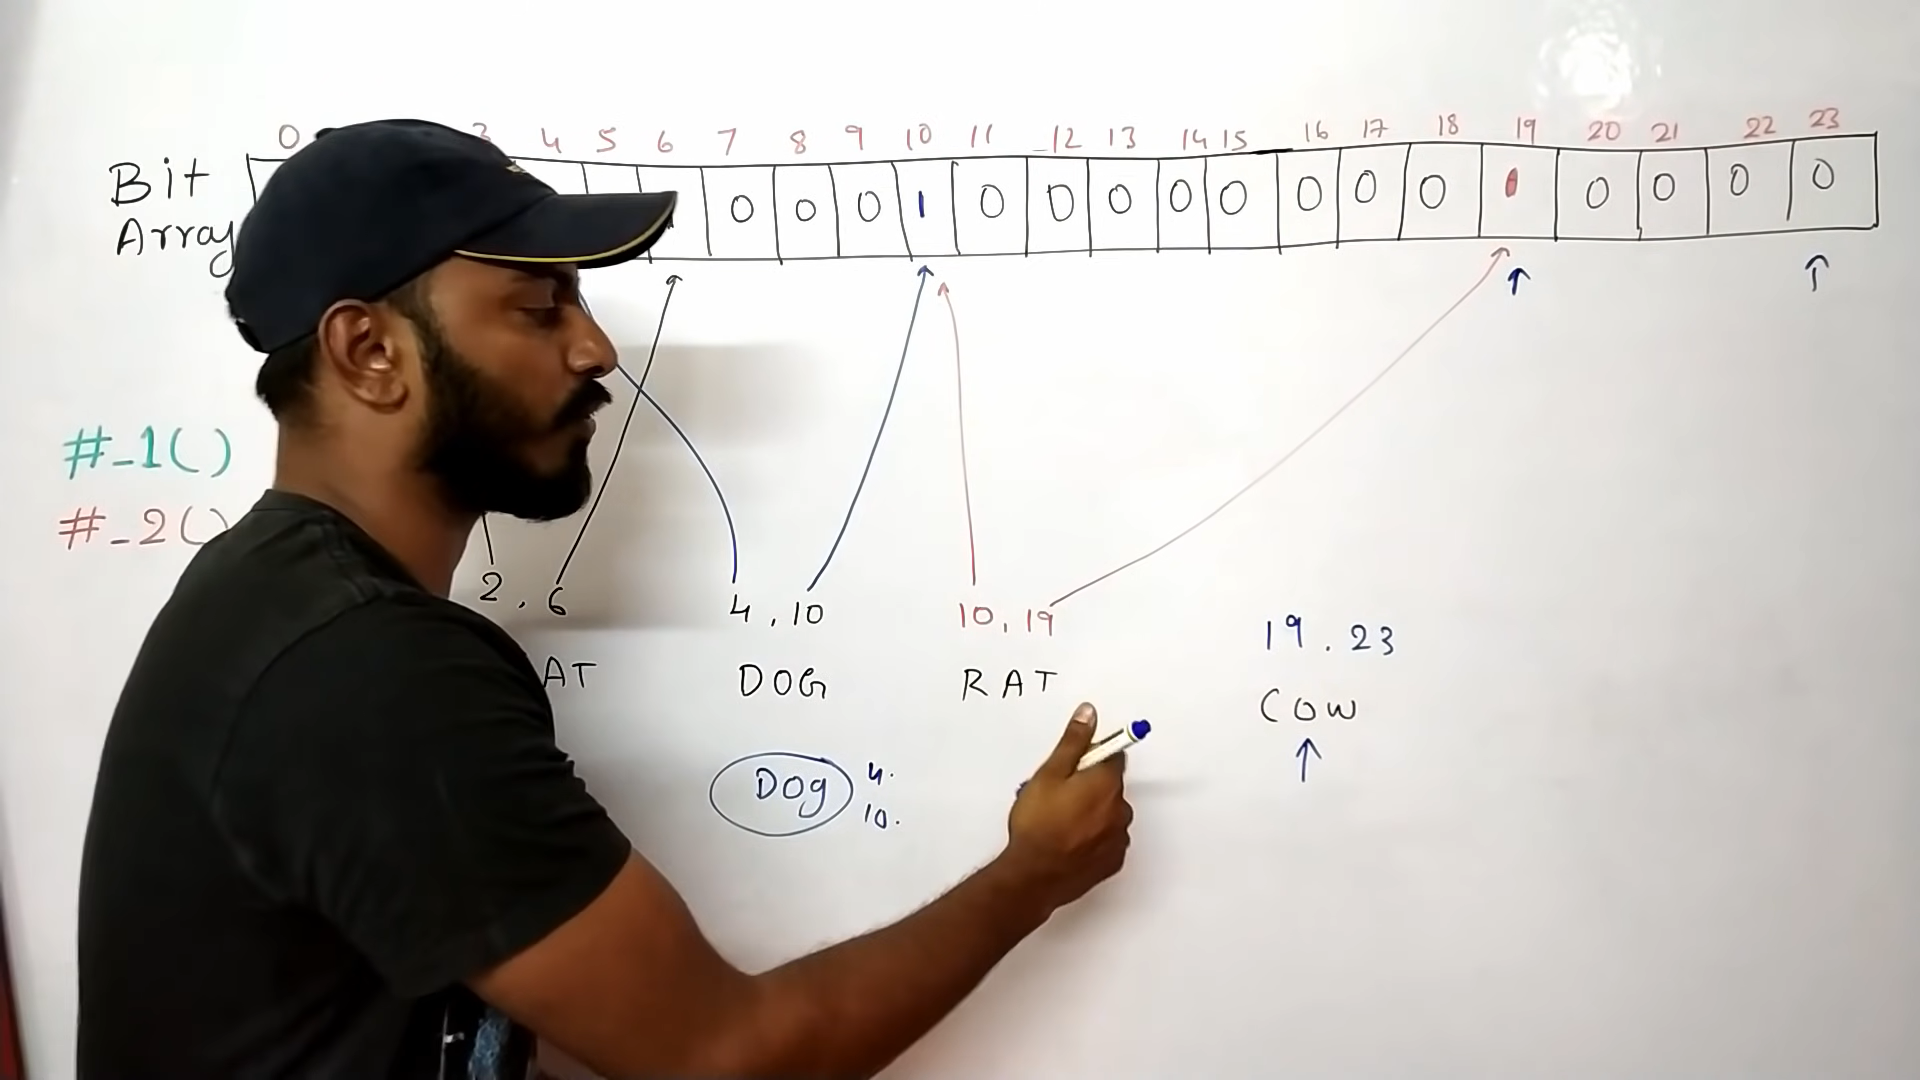 0 3 4 5 6 7 8 9 10 11 12 13 14 15 16 17 18 19 20 21 22 23
Bit
Array
0 0 0 1 0 0 0 0 0 0 0 0 0 0 0 0
#_1()
#_2()
2, 6
4, 10
10, 19
19. 23
AT
DOG
RAT
COW
Dog
4.
10.